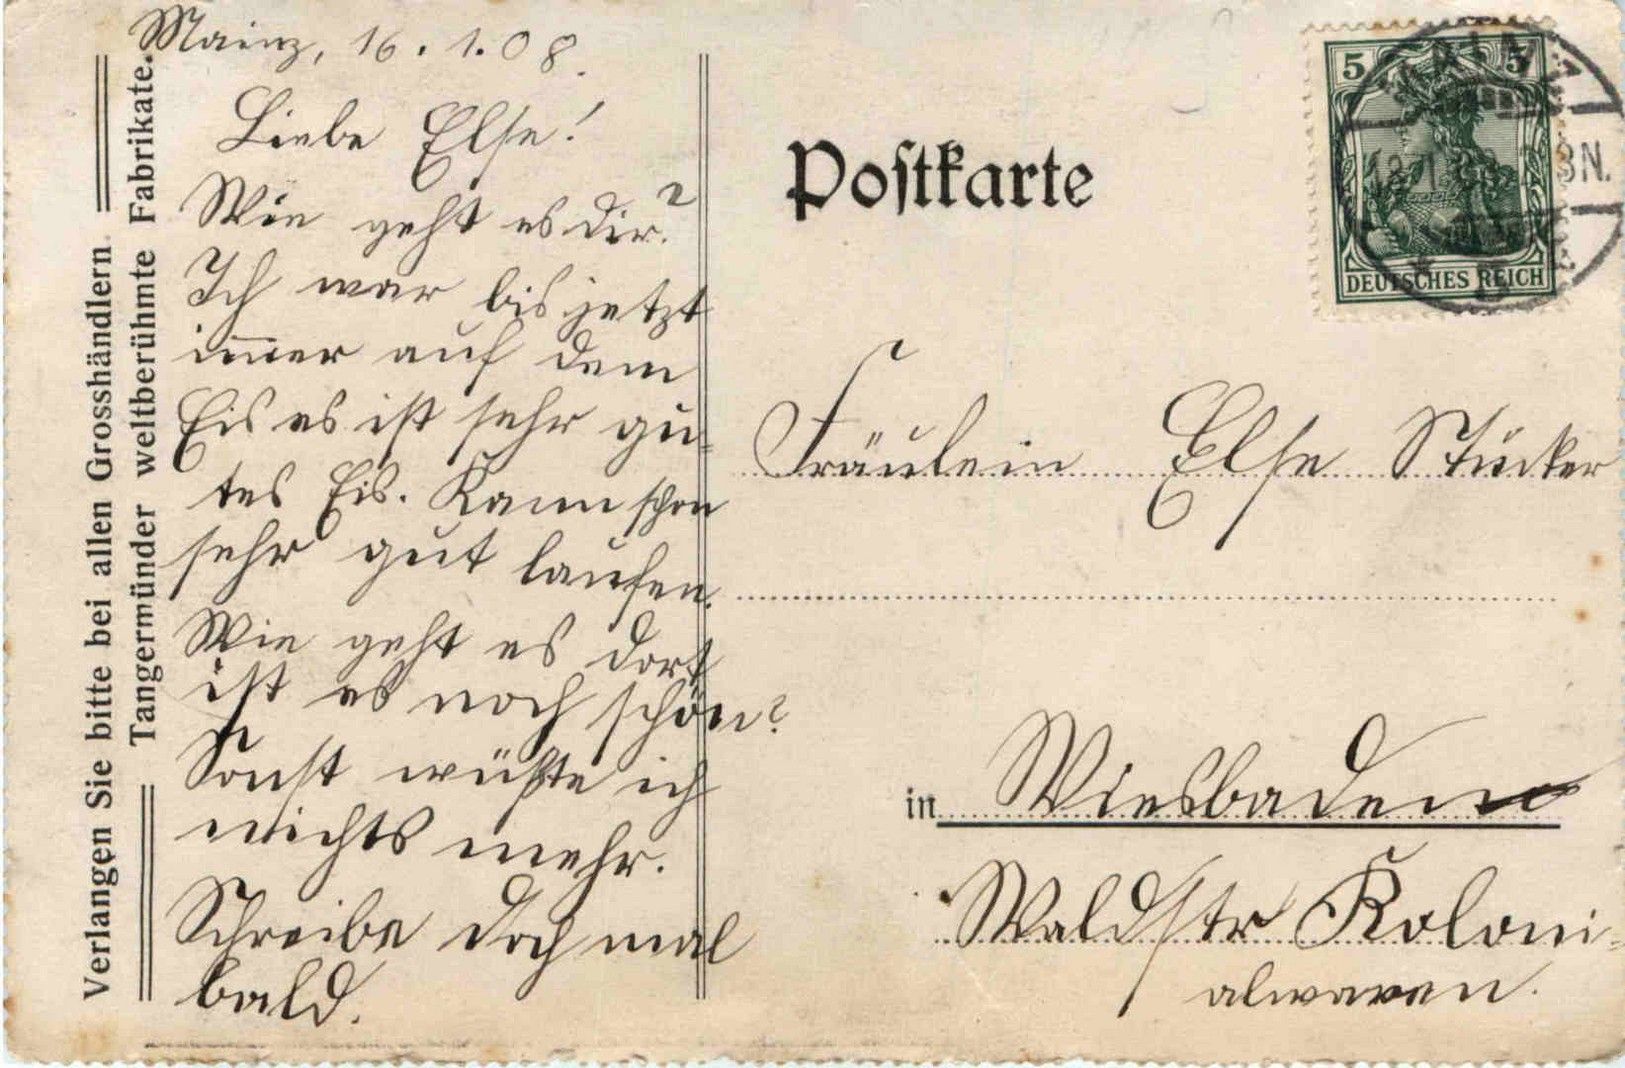 Mainz, 16.1.08.
Liebe Else!
Wie geht es dir?
Ich war bis jetzt
immer auf dem
Eis es ist sehr gu-
tes Eis. Kann schon
sehr gut laufen.
Wie geht es dort
ist es noch schön?
Sonst wüßte ich
nichts mehr.
Schreibe doch mal
bald.
Verlangen Sie bitte bei allen Grosshändlern
Tangermünder weltberühmte Fabrikate.
Postkarte
5 5
DEUTSCHES REICH
MAINZ
8N.
Fräulein Else Stücker
in Wiesbaden
Waldstr Koloni-
alwaren.